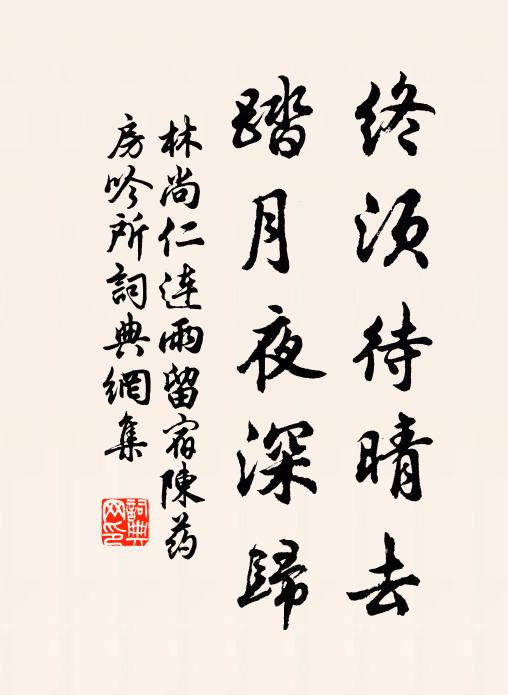 終須待晴去
踏月夜深歸
林尚仁連雨留宿陳药
房吟所詞典網集
詞典
网印